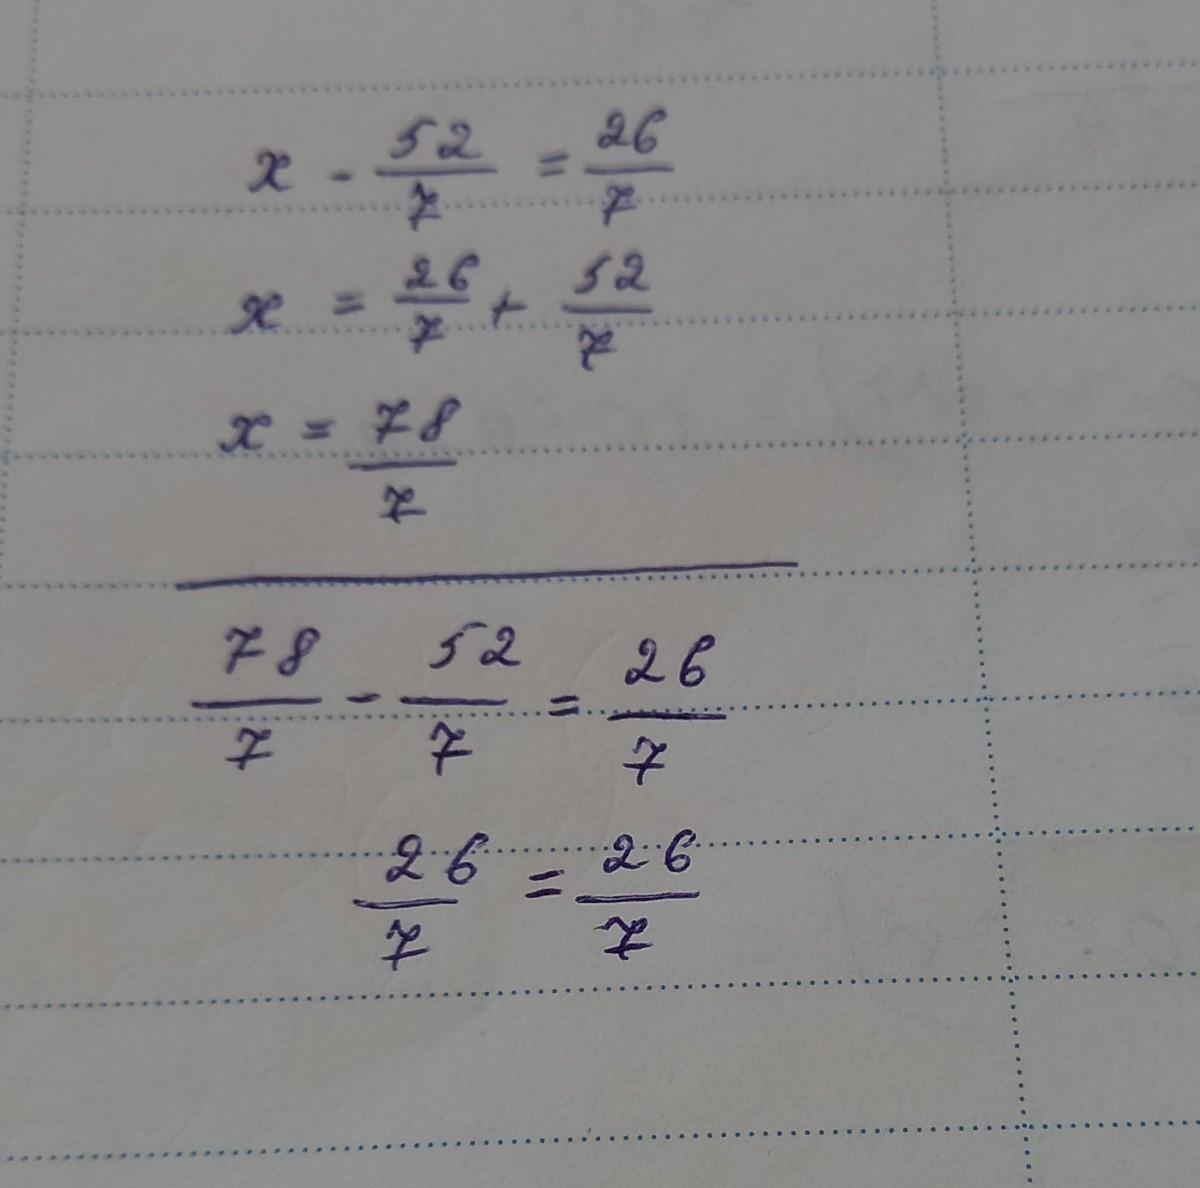 x - 52/7 = 26/7
x = 26/7 + 52/7
x = 78/7
78/7 - 52/7 = 26/7
26/7 = 26/7